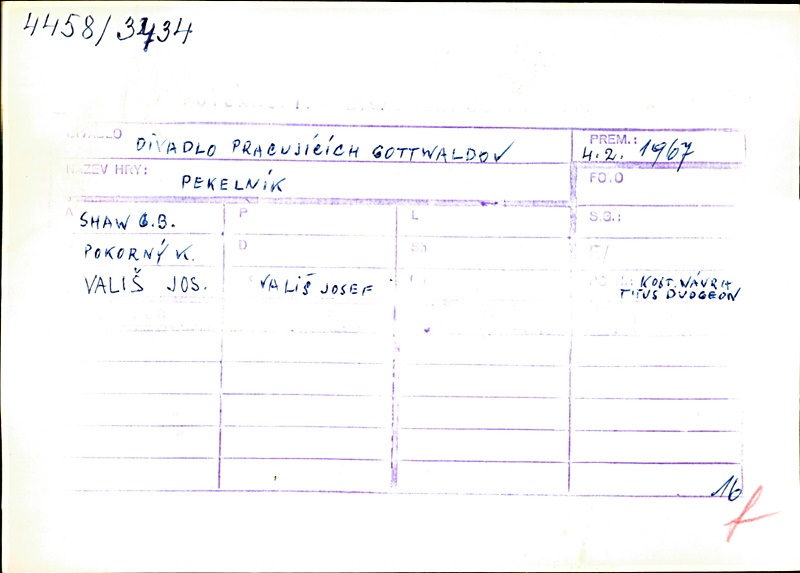 4458/3434
DIVADLO PRACUJÍCÍCH GOTTWALDOV
PREM.:
4.2. 1967
NÁZEV HRY:
PEKELNÍK
FO.O
A SHAW G.B. P L S.G.:
POKORNÝ K. D Sh
VALIŠ JOS. VALIŠ JOSEF KOST. NÁVRH
TITUS DUDGEON
16